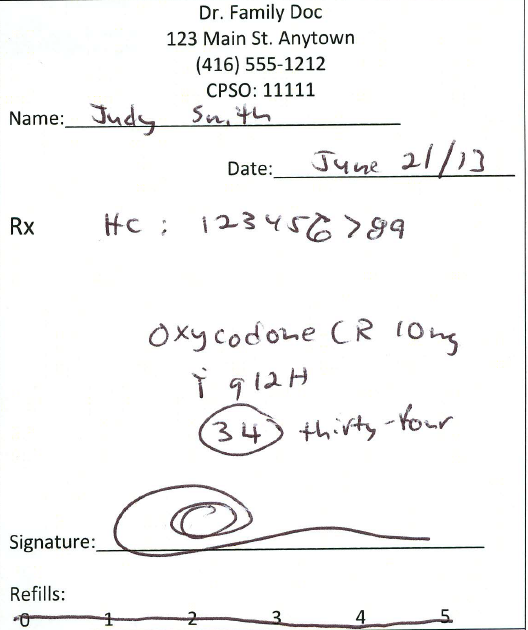 Dr. Family Doc
123 Main St. Anytown
(416) 555-1212
CPSO: 11111
Name: Judy Smith
Date: June 21/13
Rx HC : 123456789
Oxycodone CR 10mg
T q12H
34 thirty-four
Signature:
Refills:
0 1 2 3 4 5